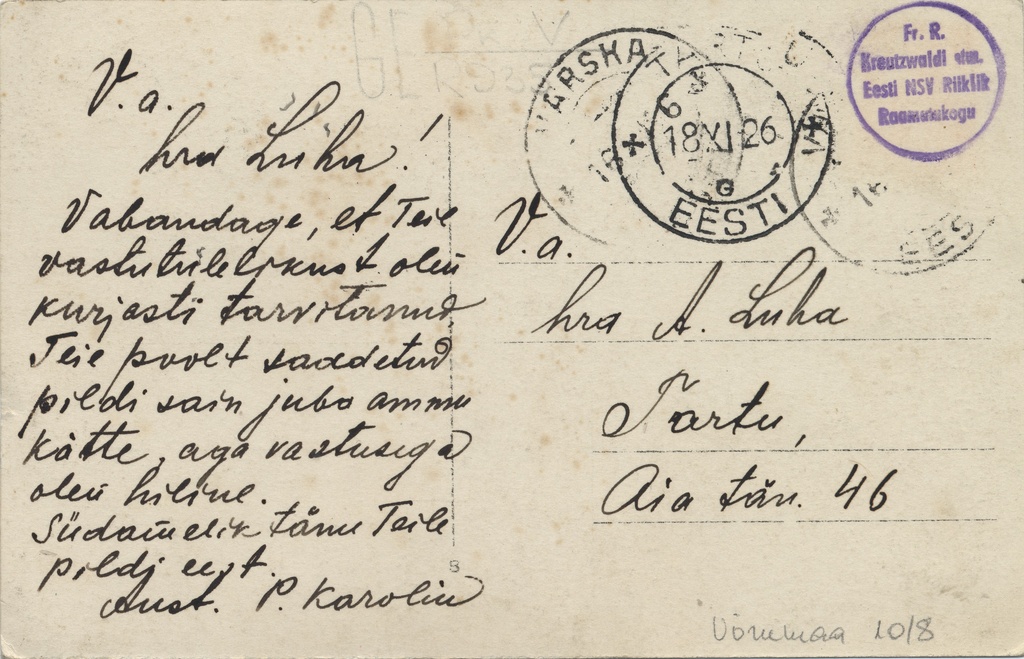 V. a.
hra Luha!
Vabandage, et Teie
vastutulelikust olen
kurjasti tarvitanud.
Teie poolt saadetud
pildi sain juba ammu
kätte, aga vastusega
olen hiline.
Südamelik tänu Teile
pildi eest.
Aust. P. Karolin
VÄRSKA
18 XI 26
G
EESTI
EES
Fr. R.
Kreutzwaldi nim.
Eesti NSV Riiklik
Raamatukogu
V. a.
hra A. Luha
Tartu,
Aia tän. 46
B
Võrumaa 10/8